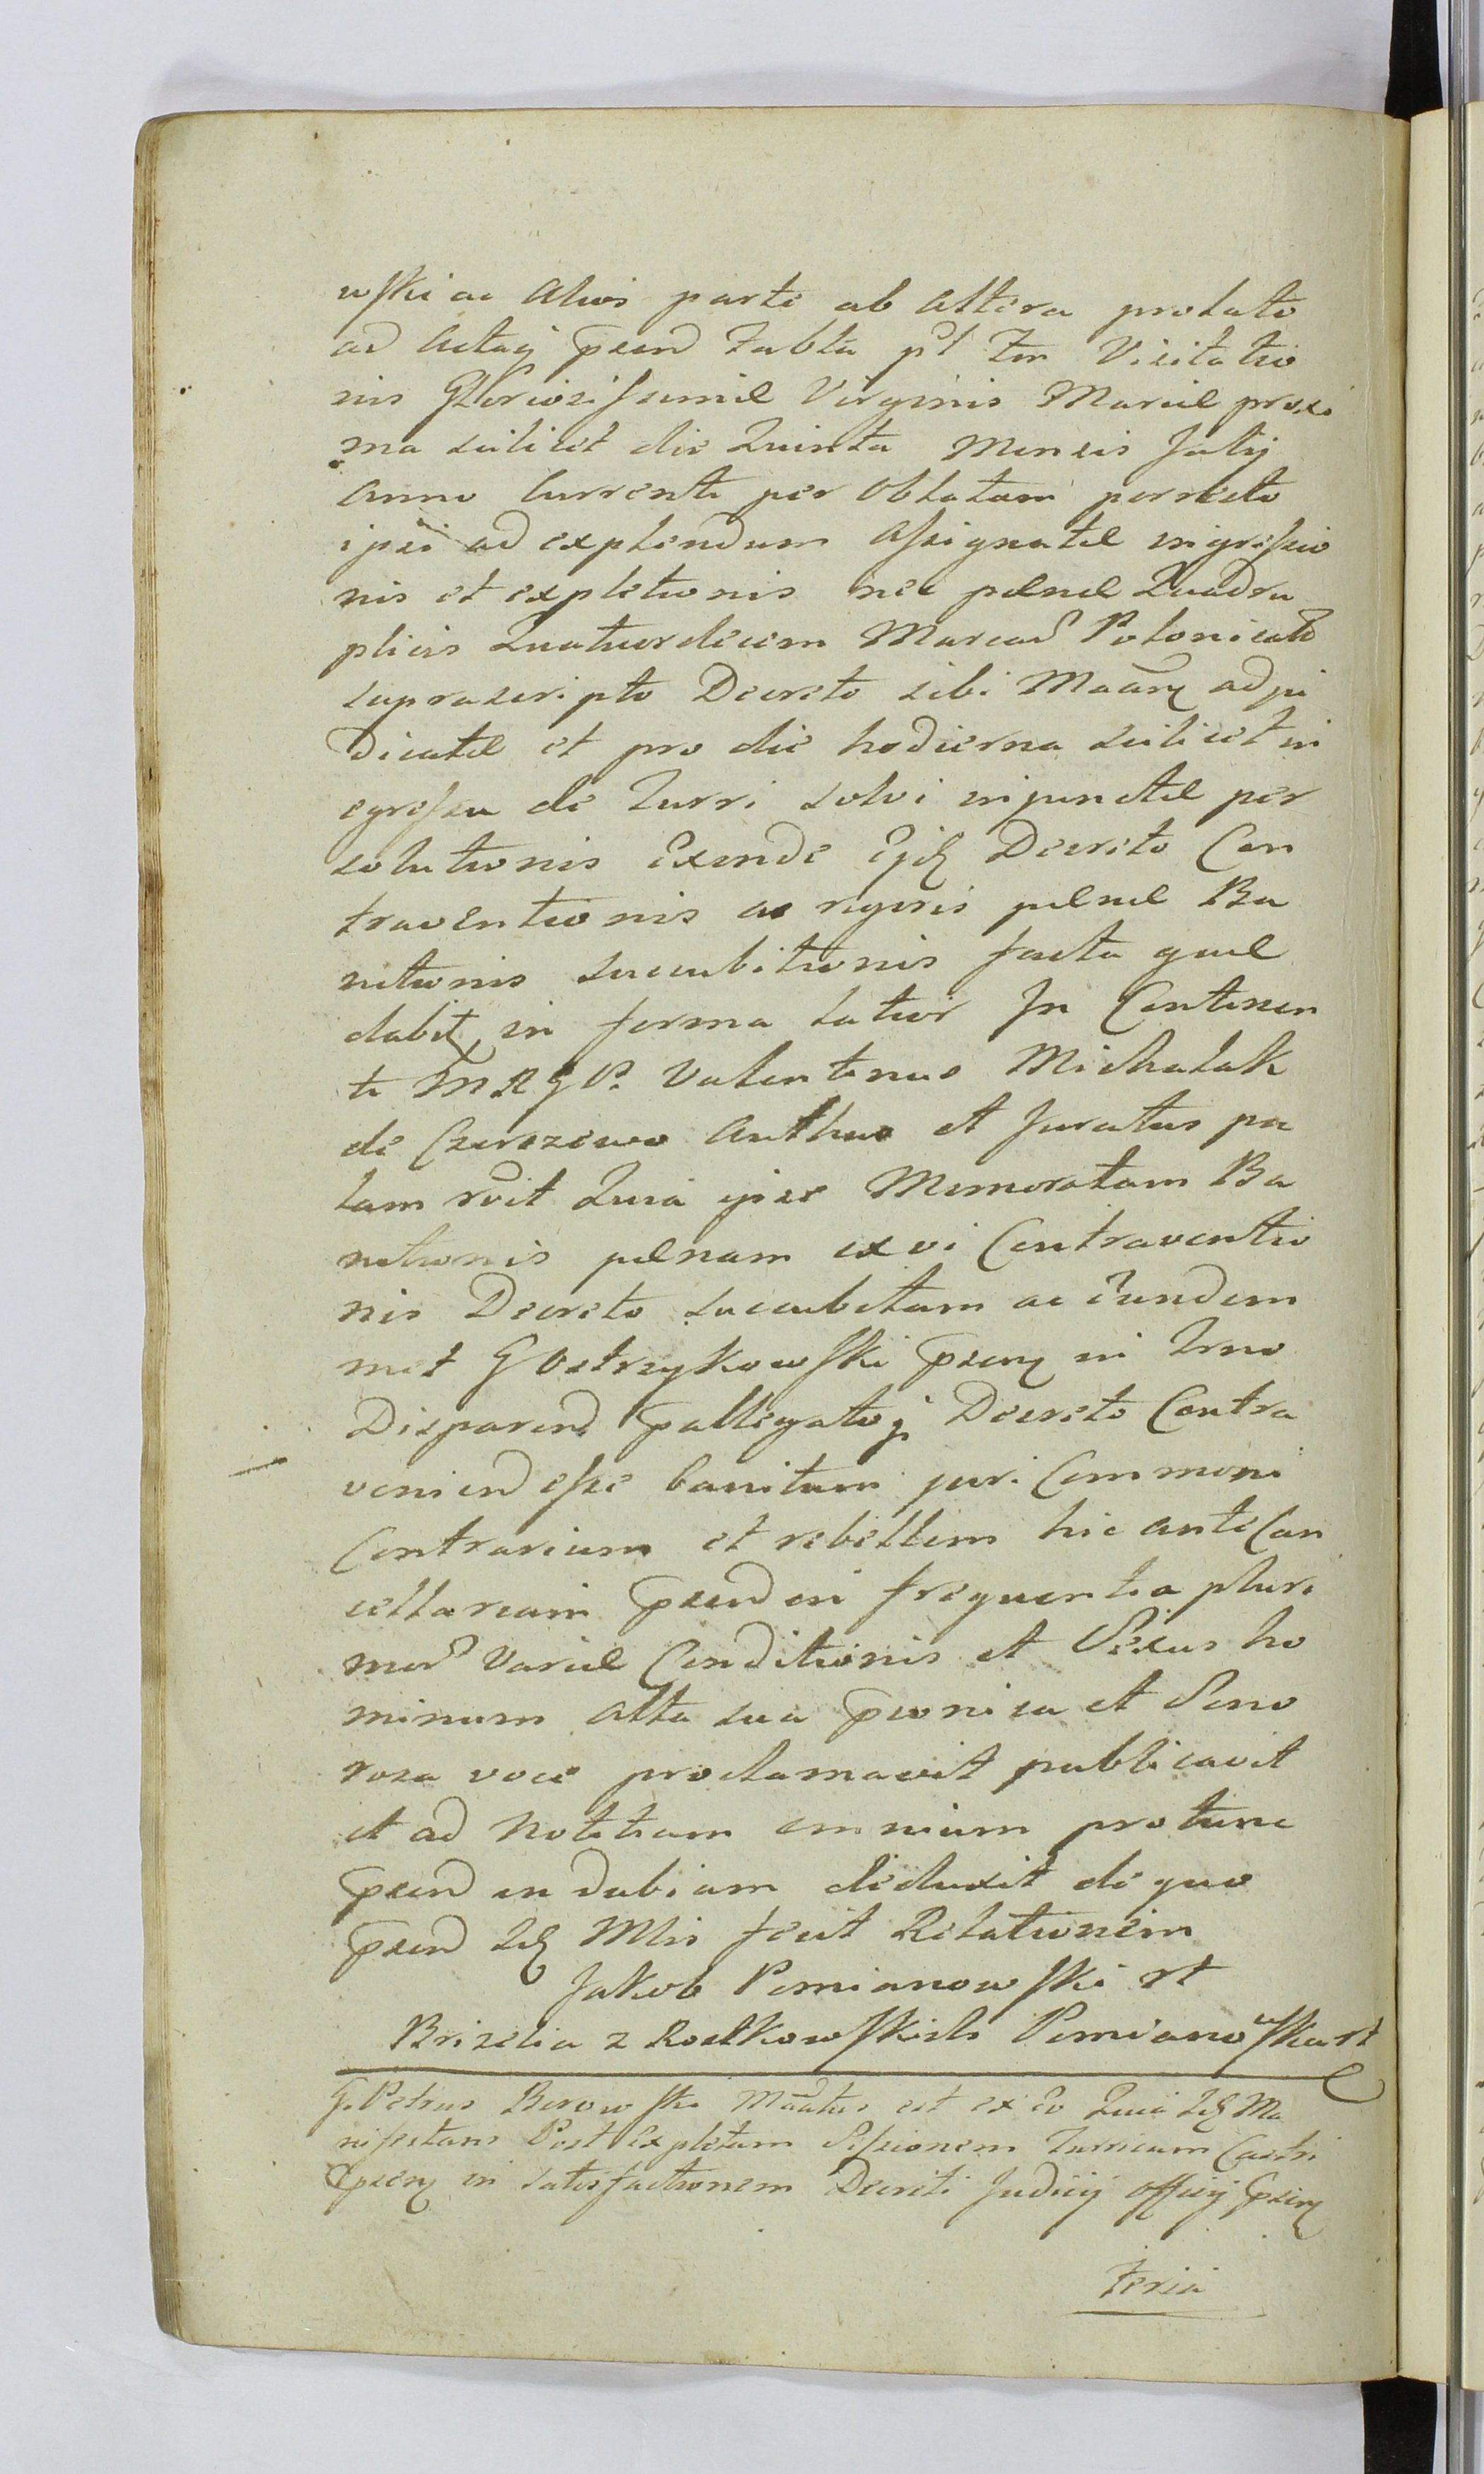 wski ac Aliis parte ab altera prolato
ad Actaq psend Sabbto pt Fm Visitatio
nis Gloriosissimæ Virginis Mariæ proxi
ma scilicet die Quinta Mensis Julij
Anno Currenti per Oblatam porrecto
ipsi ad explendum assignatæ ingressio
nis et expletionis nec pœnæ Quadru
plicis Quatuordecim Marcar Polonicalr
suprascripto Decreto sibi adju
dicatæ et pro die hodierna scilicet in
egressu de Turri solvi injunctæ per
solutionis Exinde Ejd Decreto Con
traventionis ac rigoris pœnæ Ba
nitionis succubitionis facta quæ
dabit in forma latior In Continen
ti M R G P. Valentinus Michalak
de Czerszewo Authus et Juratus pa
lam rdit Quia ipse Memoratam Ba
nitionis pœnam ex vi Contraventio
nis Decreto succubitam ac Eundem
met G Ostrzykowski psen in Trno
Disparend pallegatoq Decreto Contra
veniend esse banitum juri Commoni
Contrarium et rebellem hic ante Can
cellariam psend in frequentia pluri
mor Variæ Conditionis et Sexus ho
minum alta sua pconica et Sono
rosa voce proclamavit publicavit
et ad Notitiam omnium protunc
psend indubiam deduxit de quo
psend Idq Mlis fecit Relationem
Jakob Pomianowski rt
Brizelia z Rostkowskich Pomianowska rt
G. Petrus Borowski Maatus est ex Eo Quia Idq Ma
nifestans Post Expletam Sessionem Turrium Castri
psen in satisfactionem Decreti Judicij officij psen
Feria